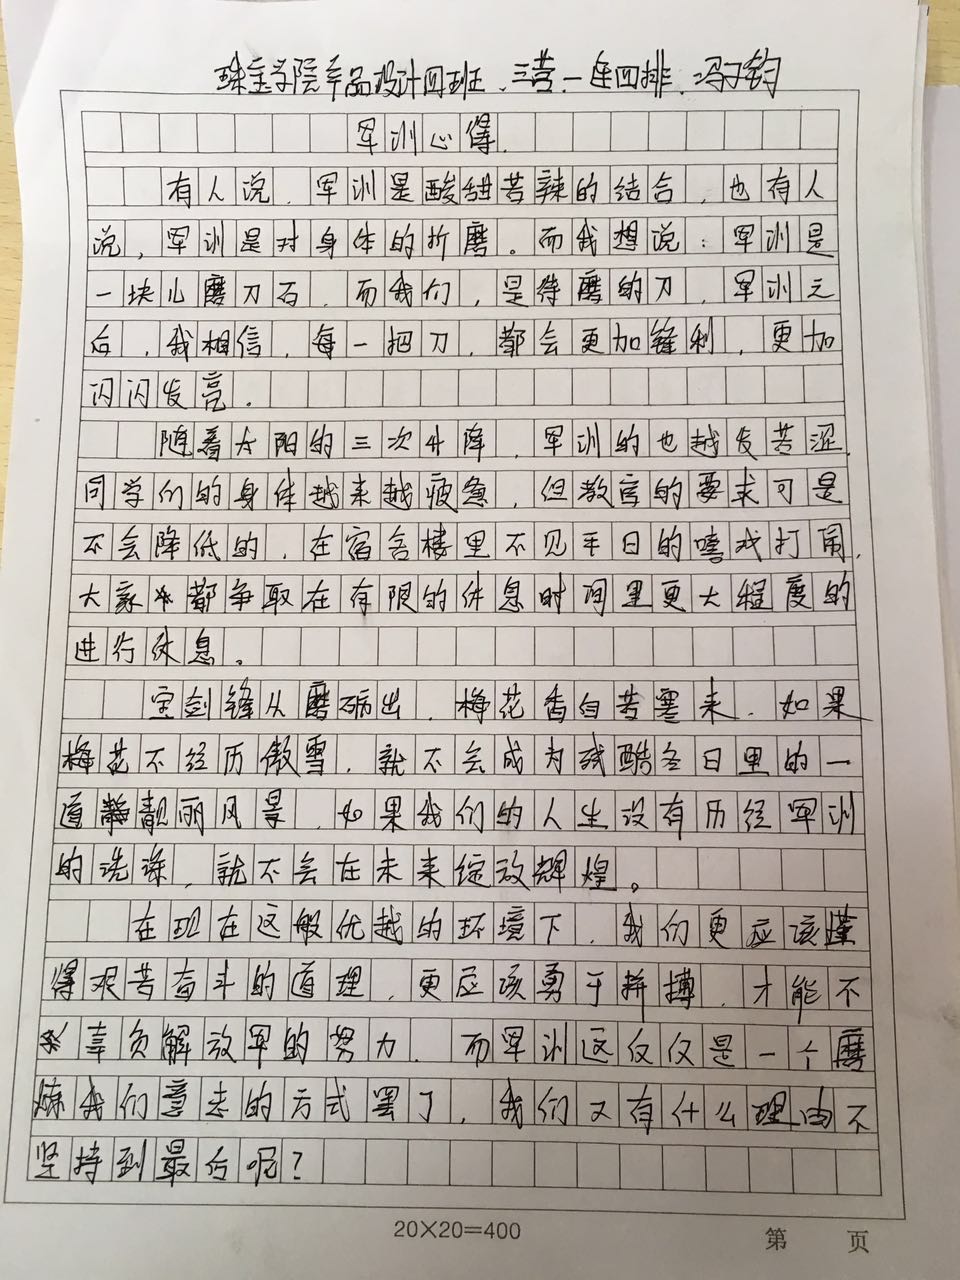 珠宝学院产品设计四班、三营一连四排、冯子钧
军训心得.
有人说,军训是酸甜苦辣的结合,也有人
说,军训是对身体的折磨。而我想说:军训是
一块儿磨刀石,而我们,是待磨的刀,军训之
后,我相信,每一把刀,都会更加锋利,更加
闪闪发亮.
随着太阳的三次升降,军训的也越发苦涩,
同学们的身体越来越疲惫,但教官的要求可是
不会降低的,在宿舍楼里不见平日的嘻戏打闹,
大家都争取在有限的休息时间里更大程度的
进行休息。
宝剑锋从磨砺出,梅花香自苦寒来.如果
梅花不经历傲雪,就不会成为残酷冬日里的一
道靓丽风景,如果我们的人生没有历经军训
的洗涤,就不会在未来绽放辉煌。
在现在这般优越的环境下,我们更应该懂
得艰苦奋斗的道理,更应该勇于拼搏,才能不
辜负解放军的努力.而军训这仅仅是一个磨
炼我们意志的方式罢了,我们又有什么理由不
坚持到最后呢?
20×20=400
第 页